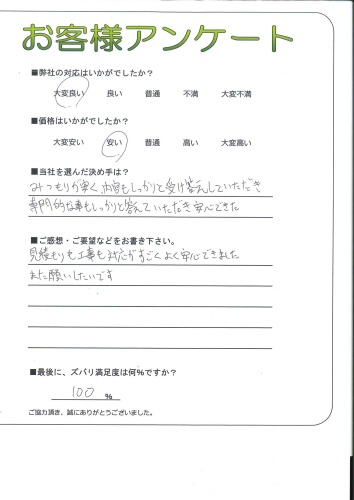 お客様アンケート
■弊社の対応はいかがでしたか？
大変良い 良い 普通 不満 大変不満
■価格はいかがでしたか？
大変安い 安い 普通 高い 大変高い
■当社を選んだ決め手は？
みつもりが安く、内容もしっかりと受け答えしていただき
専門的な事もしっかりと答えていただき安心できた
■ご感想・ご要望などをお書き下さい。
見積もりも工事も対応がすごくよく安心できました
また願いしたいです
■最後に、ズバリ満足度は何%ですか？
100 %
ご協力頂き、誠にありがとうございました。